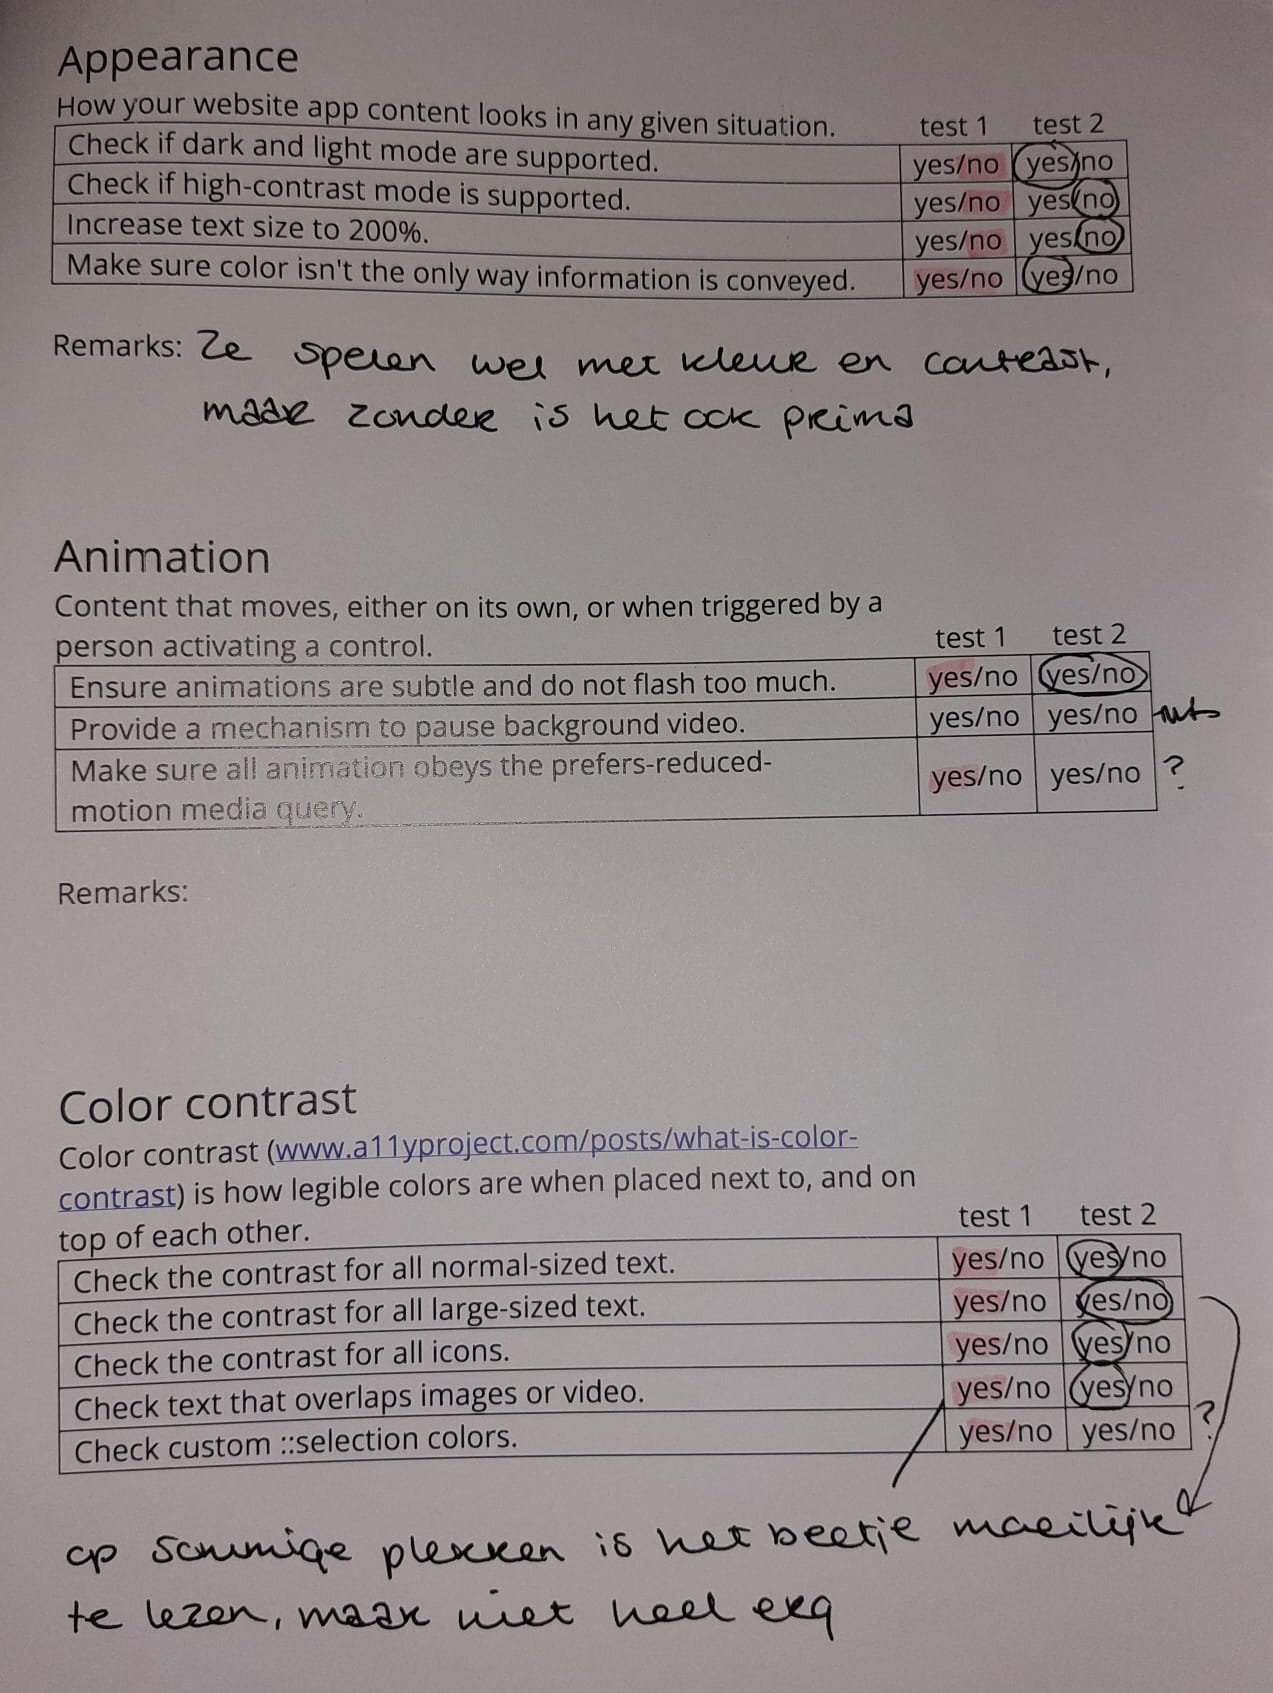 Appearance
How your website app content looks in any given situation. test 1 test 2
Check if dark and light mode are supported. yes/no yes/no
Check if high-contrast mode is supported. yes/no yes/no
Increase text size to 200%. yes/no yes/no
Make sure color isn't the only way information is conveyed. yes/no yes/no
Remarks: Ze spelen wel met kleur en contrast,
maar zonder is het ook prima
Animation
Content that moves, either on its own, or when triggered by a
person activating a control. test 1 test 2
Ensure animations are subtle and do not flash too much. yes/no yes/no
Provide a mechanism to pause background video. yes/no yes/no
Make sure all animation obeys the prefers-reduced-
motion media query. yes/no yes/no ?
Remarks:
Color contrast
Color contrast (www.a11yproject.com/posts/what-is-color-
contrast) is how legible colors are when placed next to, and on
top of each other. test 1 test 2
Check the contrast for all normal-sized text. yes/no yes/no
Check the contrast for all large-sized text. yes/no yes/no
Check the contrast for all icons. yes/no yes/no
Check text that overlaps images or video. yes/no yes/no
Check custom ::selection colors. yes/no yes/no ?
op sommige plekken is het beetje moeilijk
te lezen, maar niet heel erg